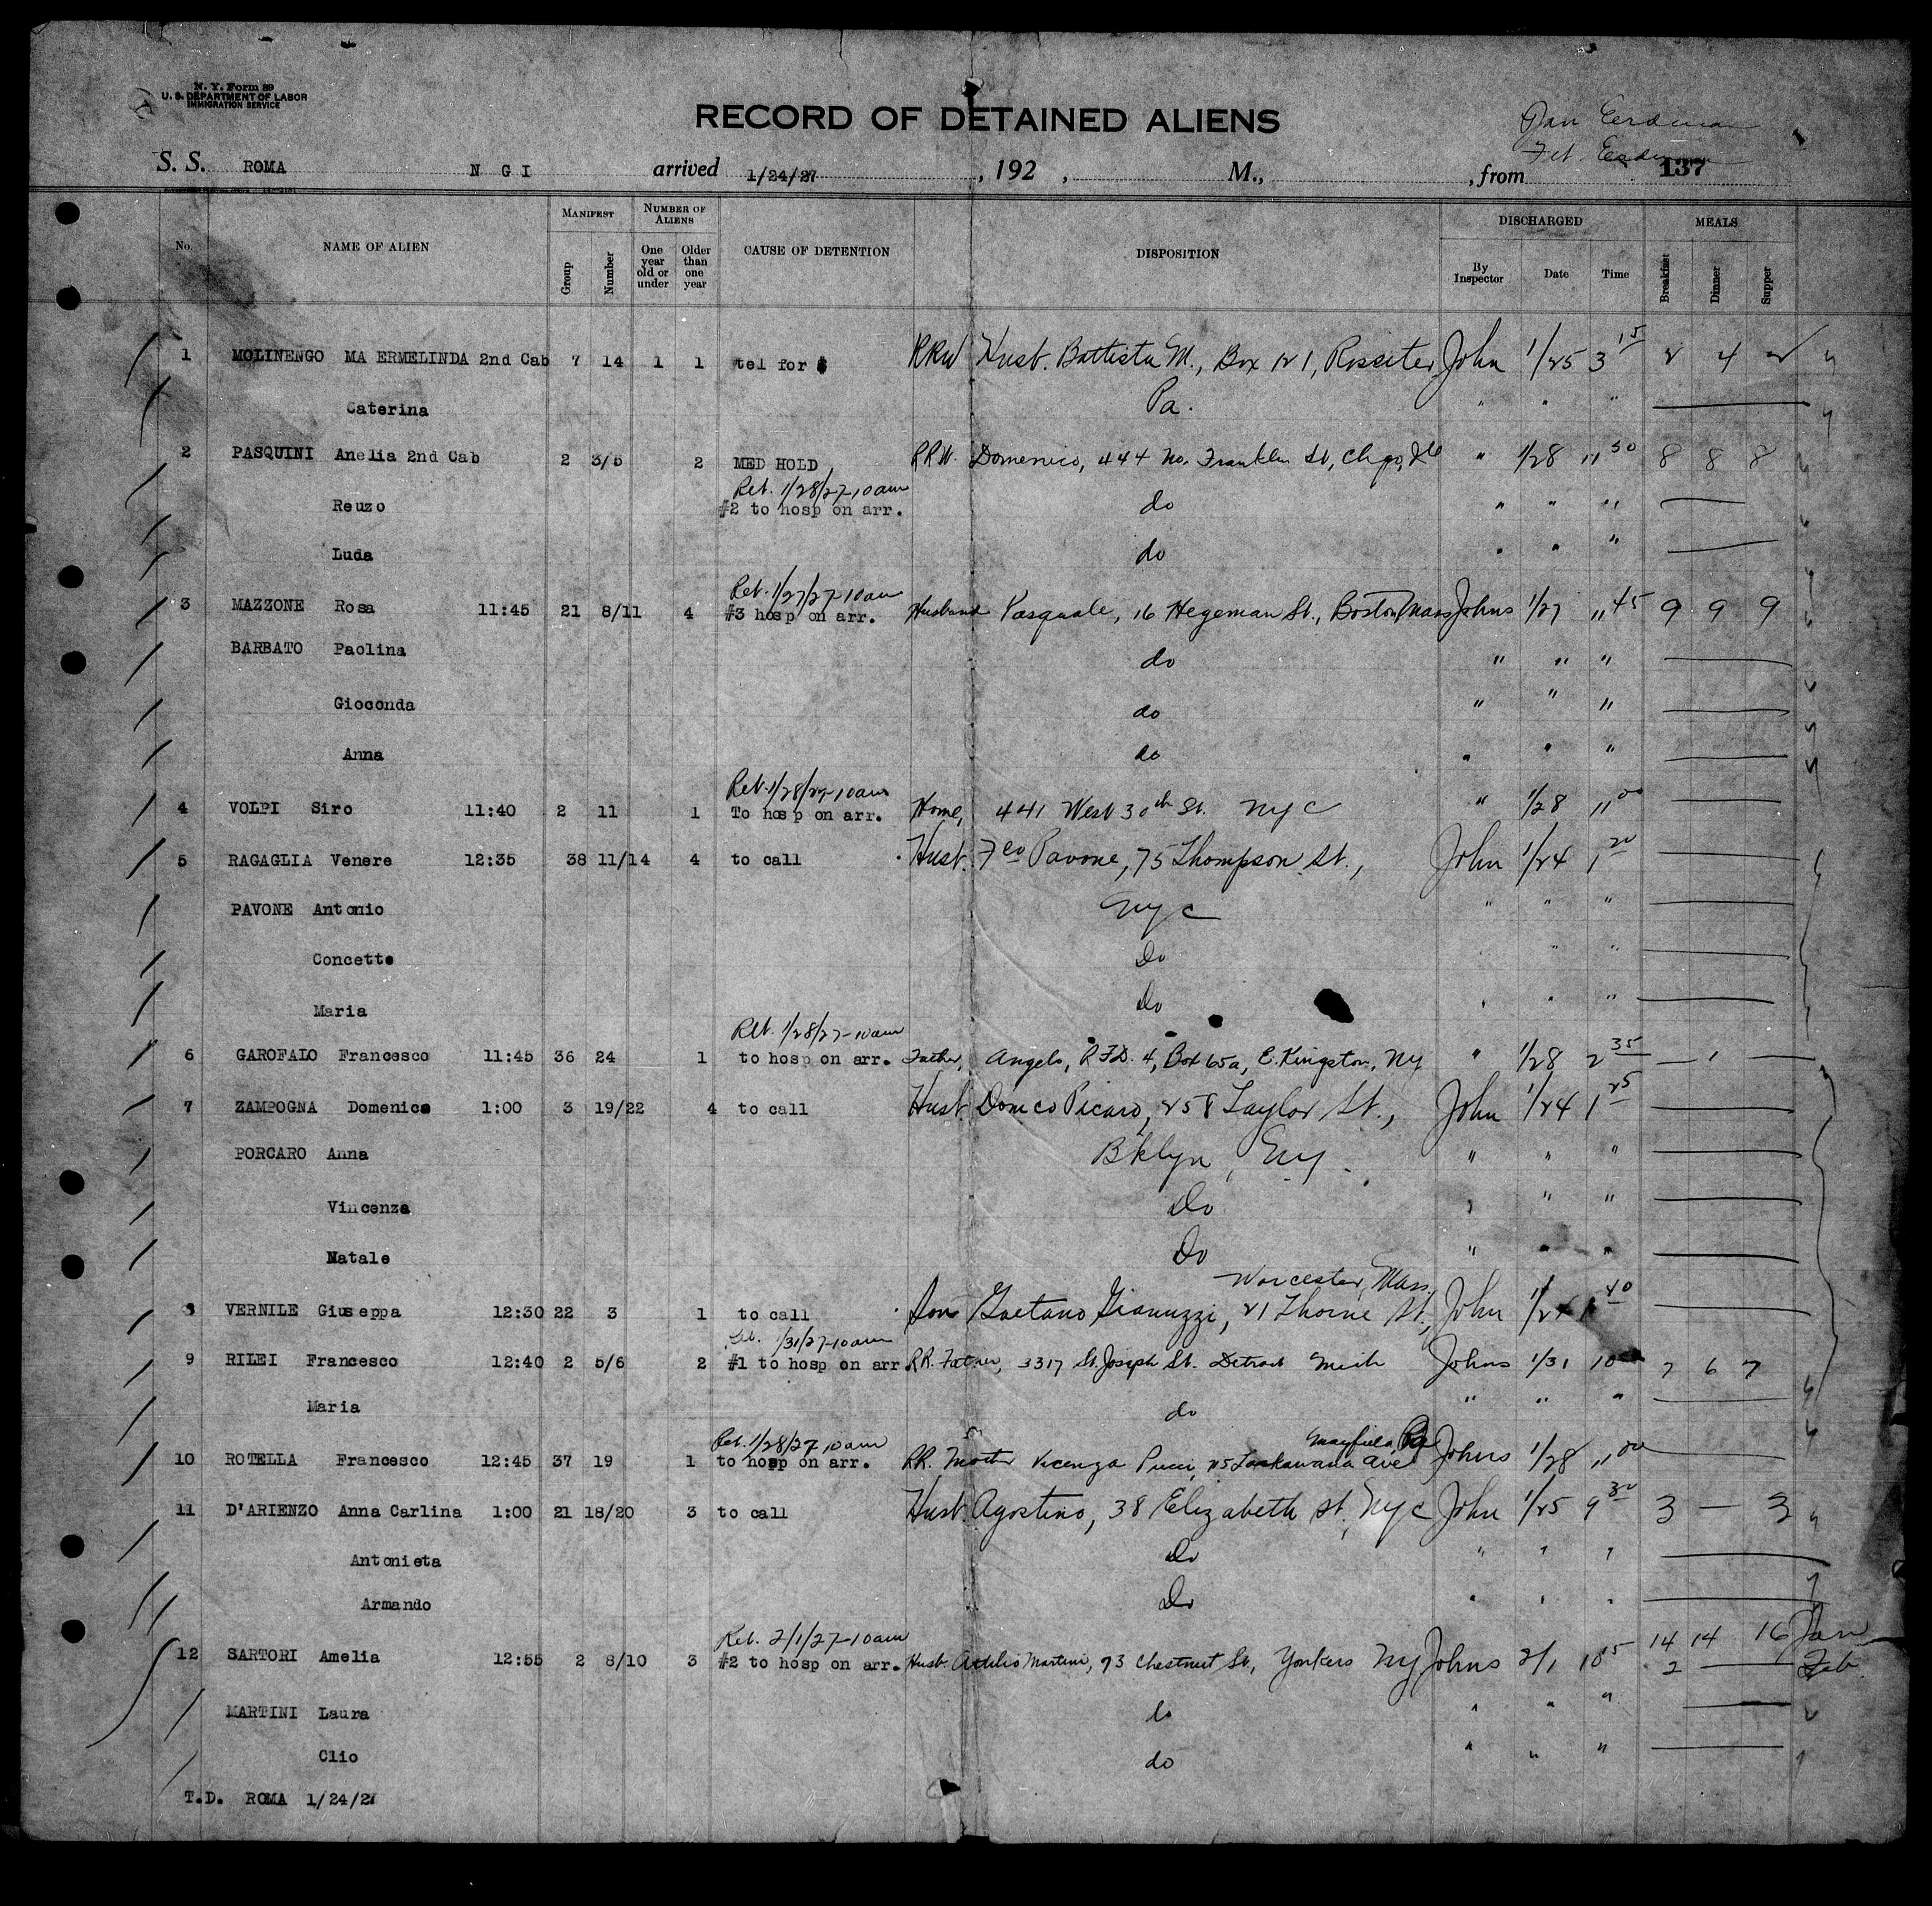 N. Y. Form 89
U. S. DEPARTMENT OF LABOR
IMMIGRATION SERVICE
RECORD OF DETAINED ALIENS
Jan Eerdman
Feb.
S. S. ROMA N G I arrived 1/24/27, 192 , M., , from 137
No. NAME OF ALIEN MANIFEST Group Number NUMBER OF ALIENS One year old or under Older than one year CAUSE OF DETENTION DISPOSITION DISCHARGED By Inspector Date Time MEALS Breakfast Dinner Supper
1 MOLINENGO MA ERMELINDA 2nd Cab 7 14 1 1 tel for $ RRW Husb. Battista M., Box 121, Rossiter John 1/25 3 15 2 4 2
Caterina Pa. " " "
2 PASQUINI Anelia 2nd Cab 2 3/5 2 MED HOLD RRW. Domenico, 444 No. Franklin St, Chgo, Ill " 1/28 11 30 8 8 8
Ret. 1/28/27-10am
Reuzo #2 to hosp on arr. do " " "
Luda do " " "
Ret. 1/27/27-10am
3 MAZZONE Rosa 11:45 21 8/11 4 #3 hosp on arr. Husband Pasquale, 16 Hegeman St., Boston Mass Johns 1/27 11 45 9 9 9
BARBATO Paolina do " " "
Gioconda do " " "
Anna do " " "
Ret. 1/28/27-10am
4 VOLPI Siro 11:40 2 11 1 To hosp on arr. Home, 441 West 30th St. NYC " 1/28 11 00
5 RAGAGLIA Venere 12:35 38 11/14 4 to call Husb. Fco Pavone, 75 Thompson St., John 1/24 1 20
PAVONE Antonio NYC " " "
Concetto Do " "
Maria Do " " "
Ret. 1/28/27-10am
6 GAROFALO Francesco 11:45 36 24 1 to hosp on arr. Father, Angelo, RFD. 4, Box 65a, E. Kingston, NY " 1/28 2 35 1
7 ZAMPOGNA Domenica 1:00 3 19/22 4 to call Husb Domco Picaro, 258 Taylor St., John 1/24 1 25
PORCARO Anna Bklyn, NY. " " "
Vincenza Do " " "
Natale Do " " "
Worcester, Mass,
8 VERNILE Giuseppa 12:30 22 3 1 to call Son Gaetano Gianuzzi, 21 Thorne St, John 1/24 1 40
1/31/27-10am
9 RILEI Francesco 12:40 2 5/6 2 #1 to hosp on arr RR. Father, 3317 St. Joseph St. Detroit Mich Johns 1/31 10 7 6 7
Maria do " " "
Ret. 1/28/27 10am Mayfield, Pa
10 ROTELLA Francesco 12:45 37 19 1 to hosp on arr. RR. Mother Vicenza Pucci, 25 Lackawana Ave Johns 1/28 11 00
11 D'ARIENZO Anna Carlina 1:00 21 18/20 3 to call Husb. Agostino, 38 Elizabeth St, NYC John 1/25 9 30 3 — 3
Antonieta Do " " "
Armando Do " " "
Ret. 2/1/27-10am 14 14 16 Jan
12 SARTORI Amelia 12:55 2 8/10 3 #2 to hosp on arr. Husb. Martini, 93 Chestnut St, Yonkers NY Johns 2/1 10 15 2 — Feb
MARTINI Laura do " " "
Clio do " " "
T.D. ROMA 1/24/27